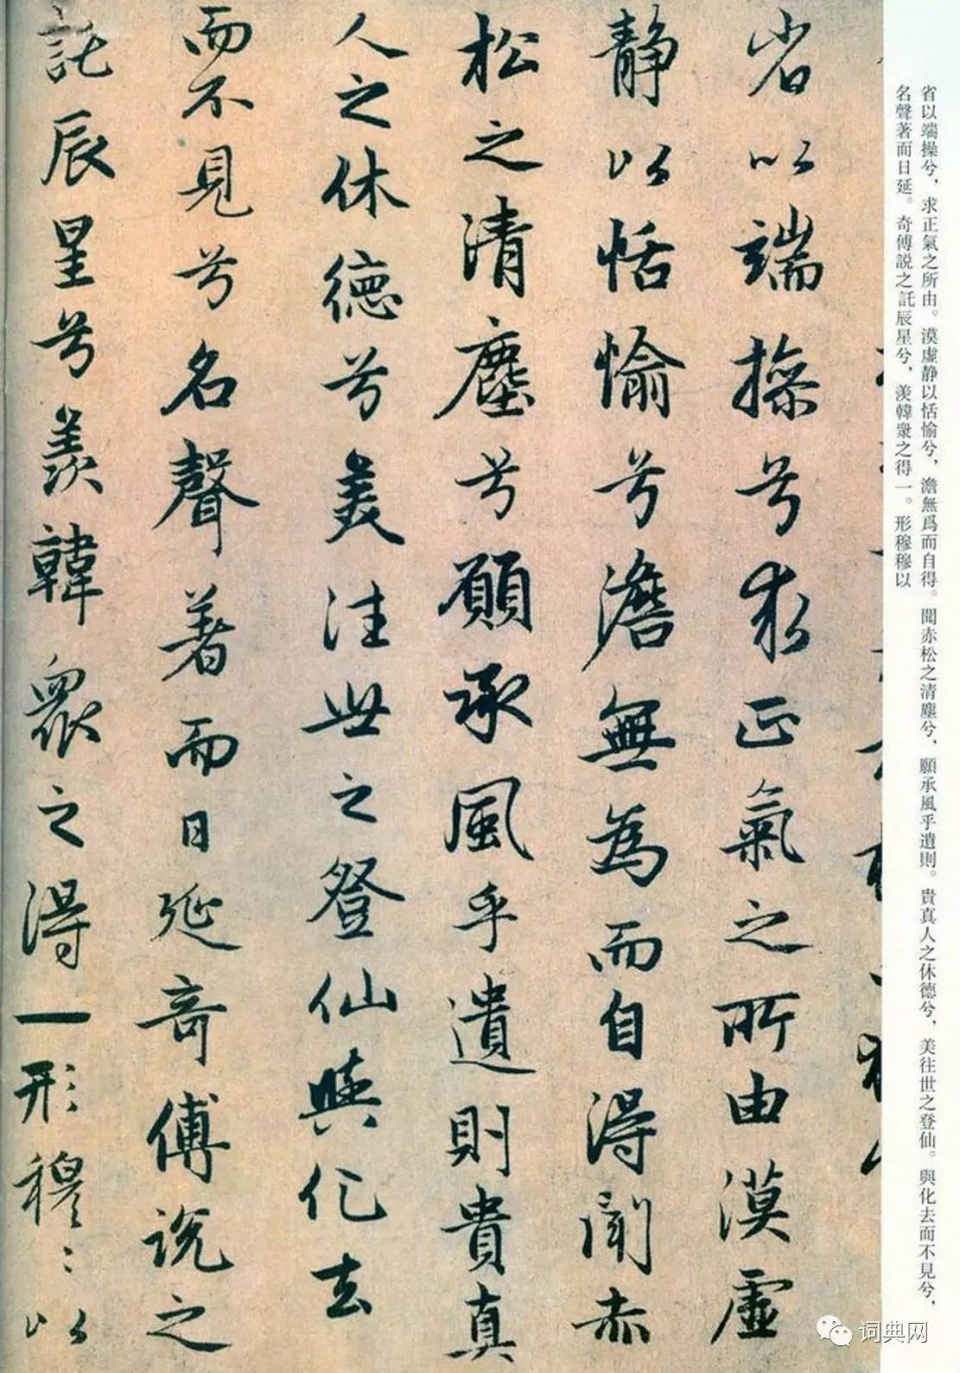 省以端操兮，求正氣之所由。漠虛静以恬愉兮，澹無爲而自得。聞赤松之清塵兮，願承風乎遺則。貴真人之休德兮，美往世之登仙。與化去而不見兮，
名聲著而日延。奇傅説之託辰星兮，羡韓衆之得一。形穆穆以
省以端操兮求正氣之所由漠虛
静以恬愉兮澹無為而自得聞赤
松之清塵兮願承風乎遺則貴真
人之休德兮美往世之登仙與化去
而不見兮名聲著而日延奇傅説之
託辰星兮羨韓衆之得一形穆〻以
词典网